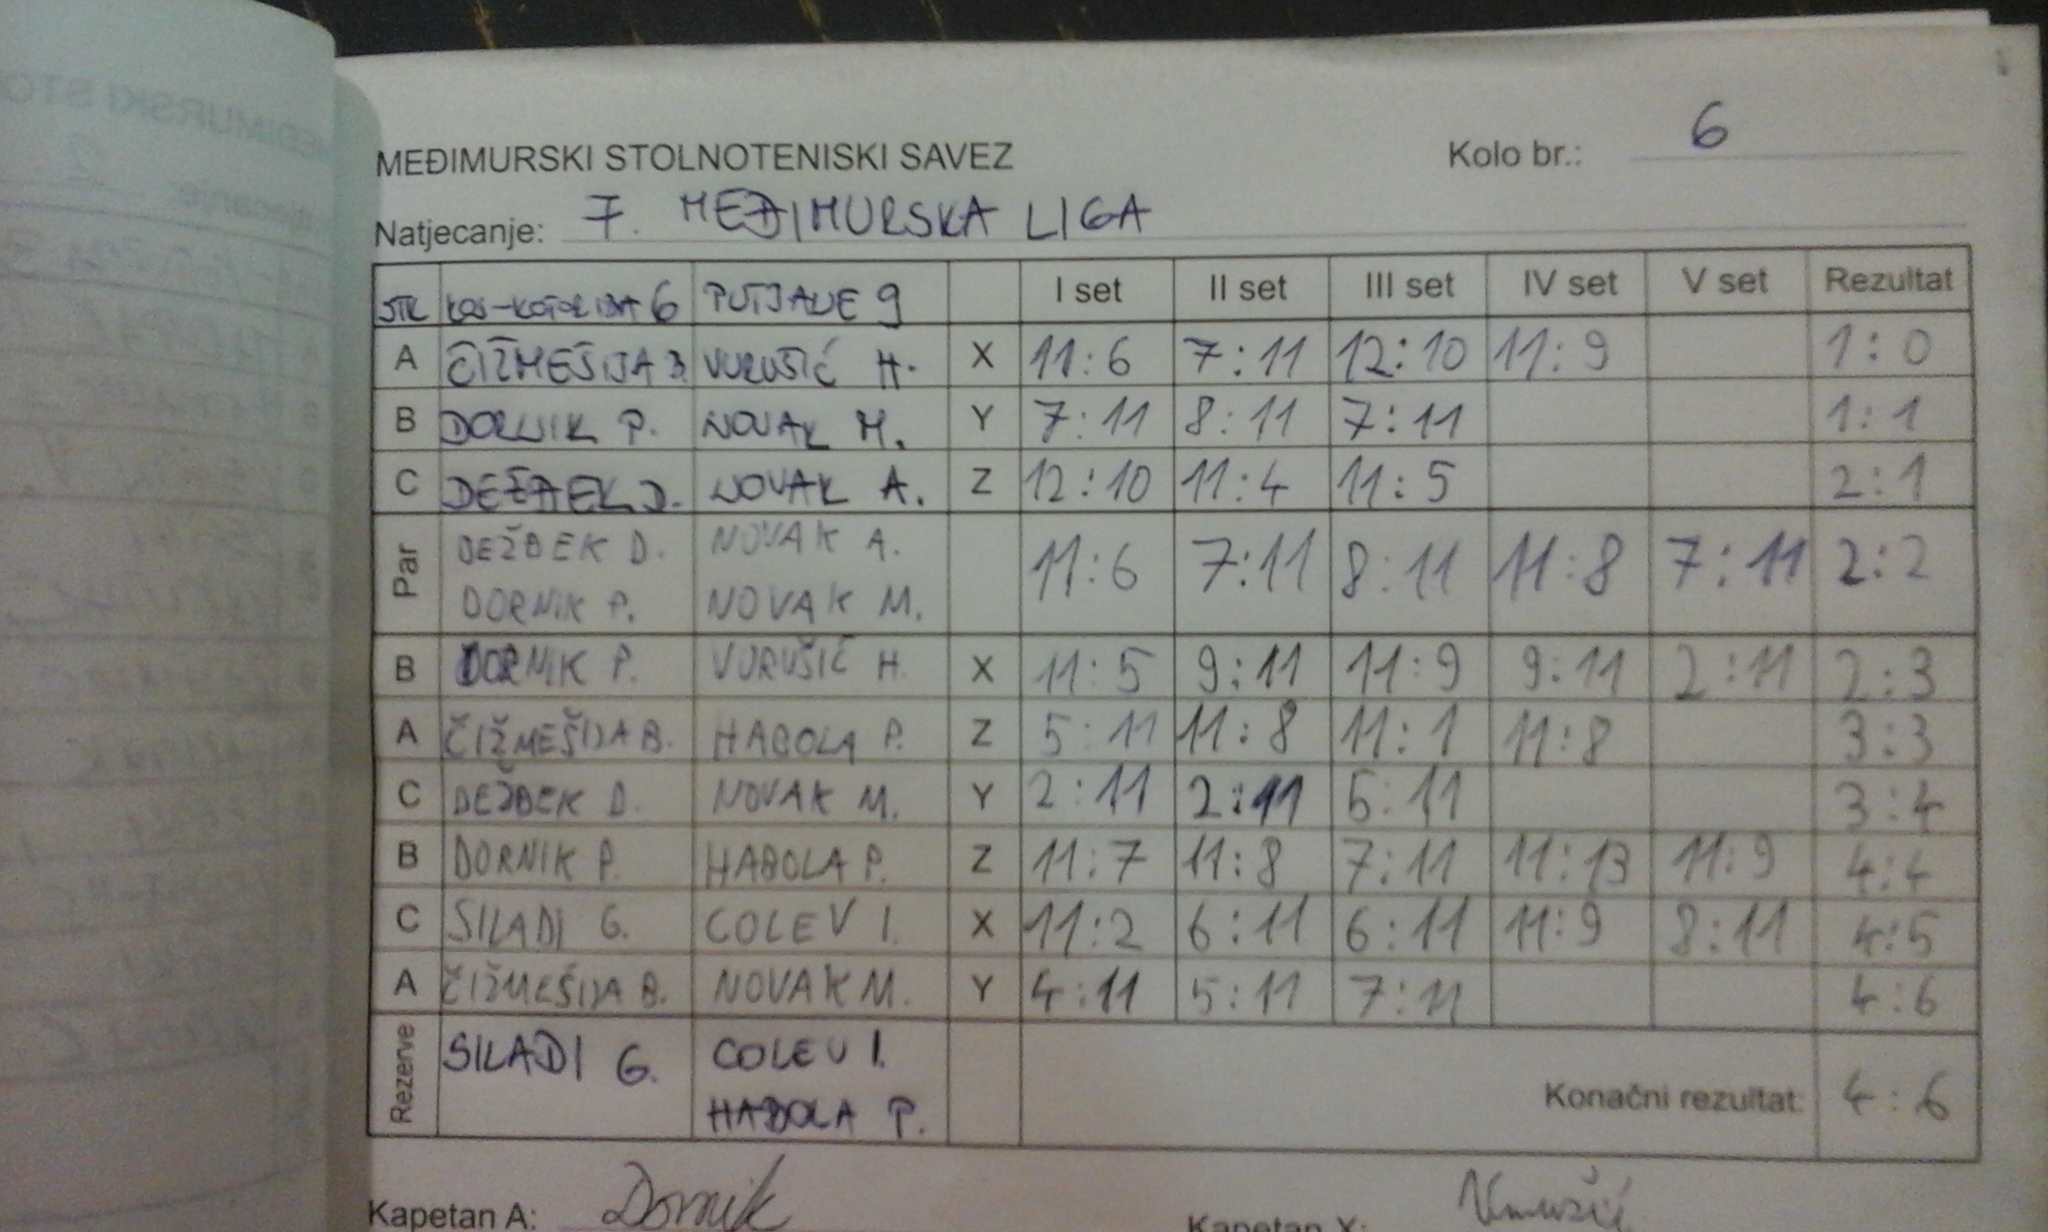 MEĐIMURSKI STOLNOTENISKI SAVEZ Kolo br.: 6
Natjecanje: 7. MEĐIMURSKA LIGA
STK KOS-KOTORIBA 6 PUTJANE 9 I set II set III set IV set V set Rezultat
A ČIŽMEŠIJA B. VURUŠIĆ H. X 11:6 7:11 12:10 11:9 1:0
B DORNIK P. NOVAK M. Y 7:11 8:11 7:11 1:1
C DEŽBEK D. NOVAK A. Z 12:10 11:4 11:5 2:1
Par DEŽBEK D. NOVAK A. 11:6 7:11 8:11 11:8 7:11 2:2
DORNIK P. NOVAK M.
B DORNIK P. VURUŠIĆ H. X 11:5 9:11 11:9 9:11 2:11 2:3
A ČIŽMEŠIJA B. HABOLA P. Z 5:11 11:8 11:1 11:8 3:3
C DEŽBEK D. NOVAK M. Y 2:11 2:11 5:11 3:4
B DORNIK P. HABOLA P. Z 11:7 11:8 7:11 11:13 11:9 4:4
C SILADI G. COLEV I. X 11:2 6:11 6:11 11:9 8:11 4:5
A ČIŽMEŠIJA B. NOVAK M. Y 4:11 5:11 7:11 4:6
Rezerve SILADI G. COLEV I.
HABOLA P.
Konačni rezultat: 4:6
Kapetan A: Dornik Kapetan X: Vurušić